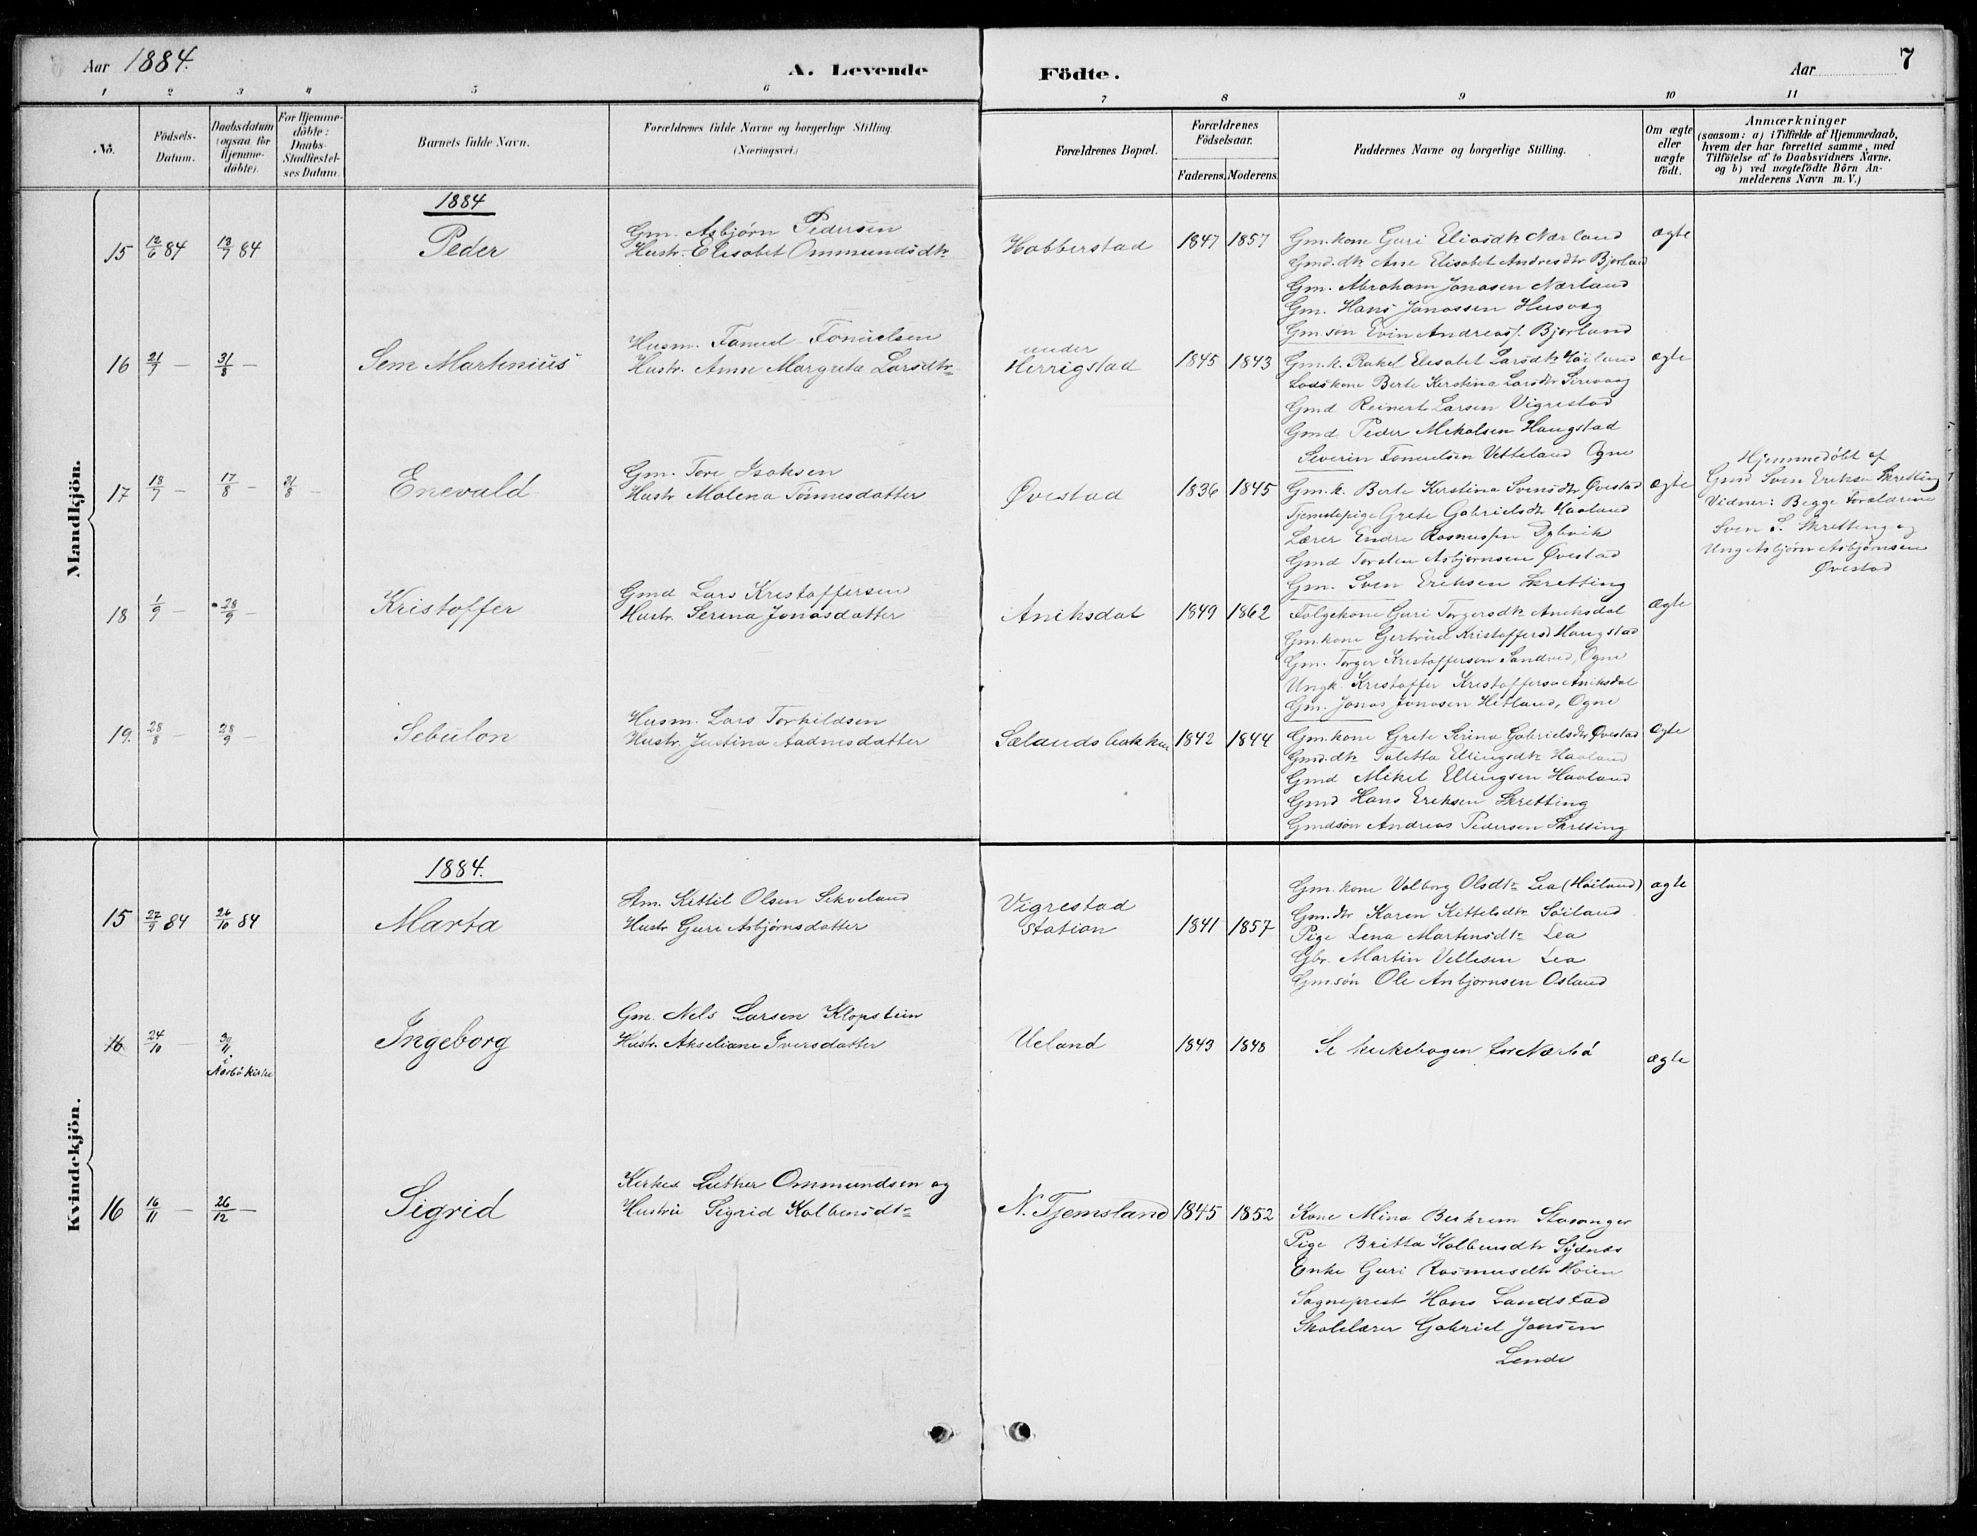 Aar 1884.
A. Levende Födte.
Aar 7
1 2 3 4 5 6 7 8 9 10 11
No.
Födsels-Datum.
Daabsdatum (ogsaa for Hjemme-döbte).
For Hjemme-döbte: Daabs-Stadfæstel-ses Datum.
Barnets fulde Navn.
Forældrenes fulde Navne og borgerlige Stilling.
(Næringsvei.)
Forældrenes Bopæl.
Forældrenes Födselsaar.
Faderens. Moderens.
Faddernes Navne og borgerlige Stilling.
Om ægte eller uægte födt.
Anmærkninger
(saasom: a) i Tilfælde af Hjemmedaab,
hvem der har forrettet samme, med
Tilföielse af to Daabsvidners Navne,
og b) ved uægtefödte Börn An-
melderens Navn m. V.)
Mandkjön.
1884
15 12/6 84 13/7 84 Peder
Gm. Asbjörn Pedersen
Hustr. Elisabet Ommundsdtr
Hobberstad 1847 1857
Gm.kone Guri Eliasdtr Nærland
Gmd.dtr Ane Elisabet Andreasdtr Bjorland
Gm. Abraham Jonasen Nærland
Gm. Hans Jonassen Husvæg
Gm.søn Evin Andreas. Bjorland
ægte
16 21/7 — 31/8 — Sem Martenius
Husm. Fanuel Fanuelsen
Hustr. Anne Margreta Larsdtr
under
Herrigstad 1845 1843
Gm.k. Rakel Elisabet Larsdtr Høiland
Lodskone Berte Kerstina Larsdtr Sirevaag
Gmd Reinert Larsen Vigrestad
Gmd Peder Mikalsen Haugstad
Severin Fanuelsen Vetteland Ogne
ægte
17 18/7 — 17/8 — 31/8 — Enevald
Gm. Tore Isaksen
Hustr Malena Tönnesdatter
Øvestad 1836 1845
Gm.k. Berte Kerstina Svensdtr Øvestad
Tjenestepige Grete Gabrielsdtr Haaland
Lærer Endre Rasmussen Dybvik
Gmd Torsten Asbjørnsen Øvestad
Gm. Sven Eriksen Skretting
ægte
Hjemmedøbt af
Gmd Sven Eriksen Skretting
Vidner: Begge forældrene
Sven S. Skretting og
Ung Asbjörn Asbjørnsen
Øvestad
18 1/9 — 28/9 — Kristoffer
Gmd Lars Kristoffersen
Hustr. Serina Jonasdatter
Aniksdal 1849 1862
Følgekone Guri Torgersdtr Aniksdal
Gm.kone Gertrud Kristoffersd Haugstad
Gm. Torger Kristoffersen Sandved, Ogne
Ungk. Kristoffer Kristoffersen Aniksdal
Gm. Jonas Jonasen Hetland, Ogne
ægte
19. 28/8 — 28/9 — Sebulon
Husm. Lars Torkildsen
Hustr. Justina Aadnesdatter
Sælandsbakken 1842 1844
Gm.kone Grete Serina Gabrielsdtr Øvestad
Gmd.dtr Taletta Ellingsdtr Haaland
Gmd Mikel Ellingsen Haaland
Gmd Hans Eriksen Skretting
Gmdsøn Andreas Pedersen Skretting
ægte
Kvindekjön.
1884.
15 27/9 84 26/10 84 Marta
Stm. Kittil Olsen Sikveland
Hustr Guri Asbjørnsdatter
Vigrestad
Station 1841 1857
Gm.kone Valborg Olsdtr Lea (Høiland)
Gm.dtr Karen Kittelsdtr Söiland
Pige Lena Martensdtr Lea
Gbr. Martin Vellesen Lea
Gmsön Ole Anbjørnsen Osland
ægte
16 24/10 — 30/11 i Nærbö kirke Ingeborg
Gm. Nels Larsen Klopstein
Hustr. Akseliane Iversdatter
Ueland 1843 1848
Se kirkebogen for Nærbö
ægte
16 16/11 — 26/12 — Sigrid
Kirkes. Luther Ommundsen og
Hustru Sigrid Kolbensdtr
N. Tjemsland 1845 1852
Kone Mina Berkrem Stavanger
Pige Britta Kolbensdtr Sydnes
Enke Guri Rasmusdtr Hoien
Sogneprest Hans Landstad
Skolelærer Gabriel Jansen
Lende